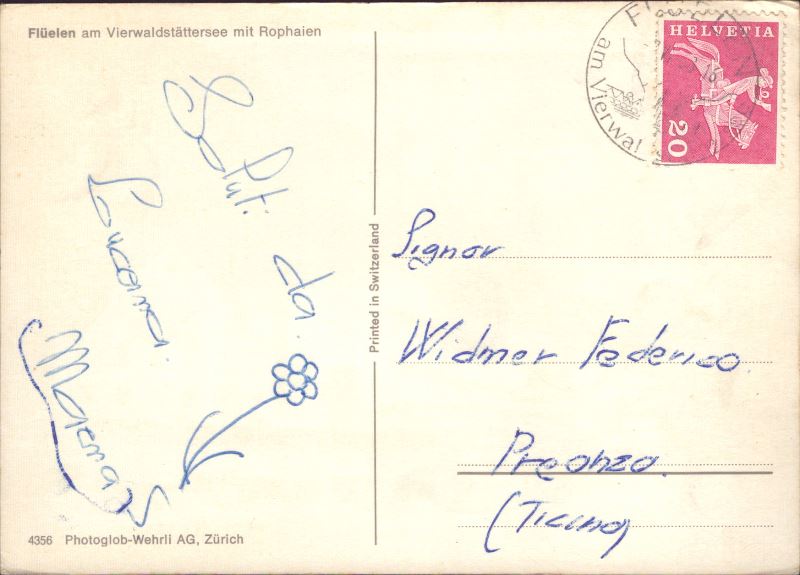 Flüelen am Vierwaldstättersee mit Rophaien
HELVETIA
20
am Vierwal
Salut. da.
Lucerna.
Morena
Printed in Switzerland
Signor
Widmer Federico.
Preonzo.
(Ticino)
4356 Photoglob-Wehrli AG, Zürich